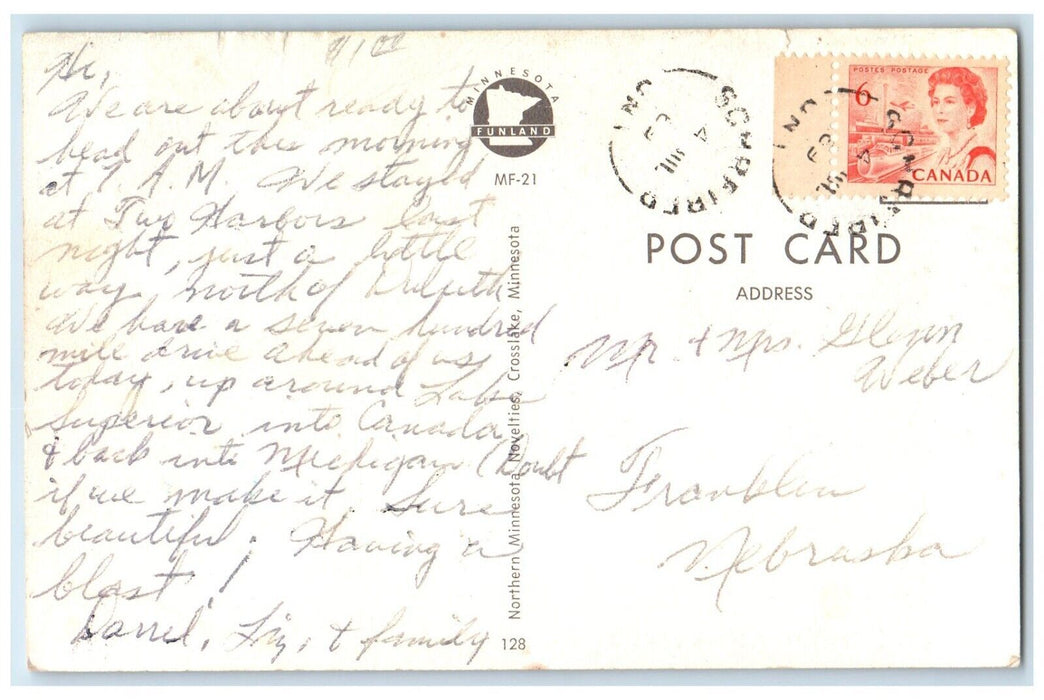 Hi,
We are about ready to
head out this morning
at 7 A.M. We stayed
at Two Harbors last
night, just a little
way north of Duluth
We have a seven hundred
mile drive ahead of us
today, up around Lake
Superior into Canada,
& back into Michigan (Doubt
if we make it. Sure
beautiful. Having a
blast!
Darrel, Liz, & family
$1.00
MINNESOTA
FUNLAND
MF-21
Northern Minnesota Novelties, Crosslake, Minnesota
128
SCHREIBER
ONT
4 JUL
POSTES POSTAGE
6
CANADA
SCHREIBER
ONT
4 JUL
POST CARD
ADDRESS
Mr. & Mrs. Glenn
Weber
Franklin
Nebraska